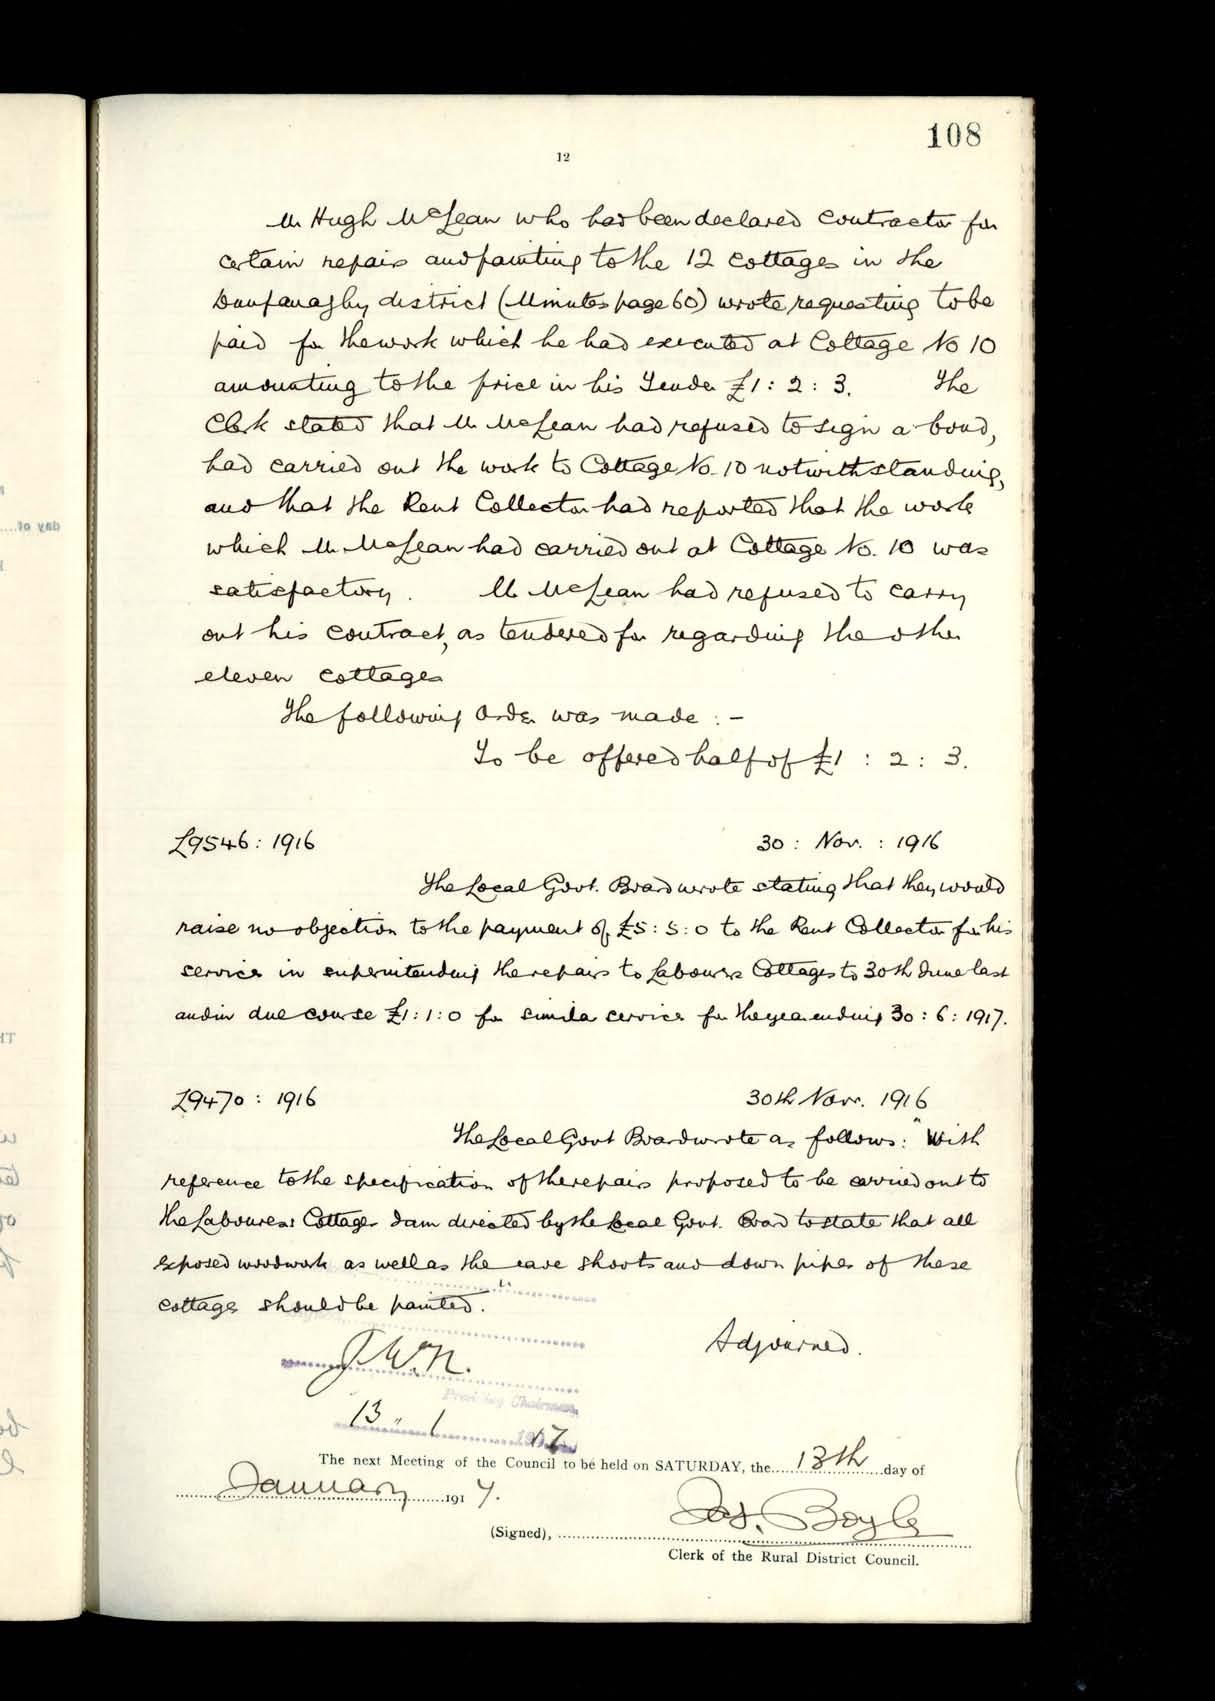 108
12
Mr Hugh McLean who had been declared contractor for
certain repairs and painting to the 12 cottages in the
Dunfanaghy district (Minutes page 60) wrote requesting to be
paid for the work which he had executed at Cottage No 10
amounting to the price in his Tender £1 : 2 : 3. The
Clerk stated that Mr McLean had refused to sign a bond,
had carried out the work to Cottage No. 10 notwithstanding,
and that the Rent Collector had reported that the work
which Mr McLean had carried out at Cottage No. 10 was
satisfactory. Mr McLean had refused to carry
out his contract, as tendered for regarding the other
eleven cottages
The following Order was made : -
To be offered half of £1 : 2 : 3.
L9546 : 1916 30 : Nov. : 1916
The Local Govt. Board wrote stating that they would
raise no objection to the payment of £5 : 5 : 0 to the Rent Collector for his
services in superintending the repairs to Labourers Cottages to 30th June last
and in due course £1 : 1 : 0 for similar services for the year ending 30 : 6 : 1917.
L9470 : 1916 30th Novr. 1916
The Local Govt Board wrote as follows : "With
reference to the specification of the repairs proposed to be carried out to
the Labourers Cottages I am directed by the Local Govt. Board to state that all
exposed woodwork as well as the eave shoots and down pipes of these
cottages should be painted.
Adjourned.
J.W.N.
Presiding Chairman,
13 " 1 1917
The next Meeting of the Council to be held on SATURDAY, the 13th day of
January 1917.
(Signed), Jas. Boyle
Clerk of the Rural District Council.